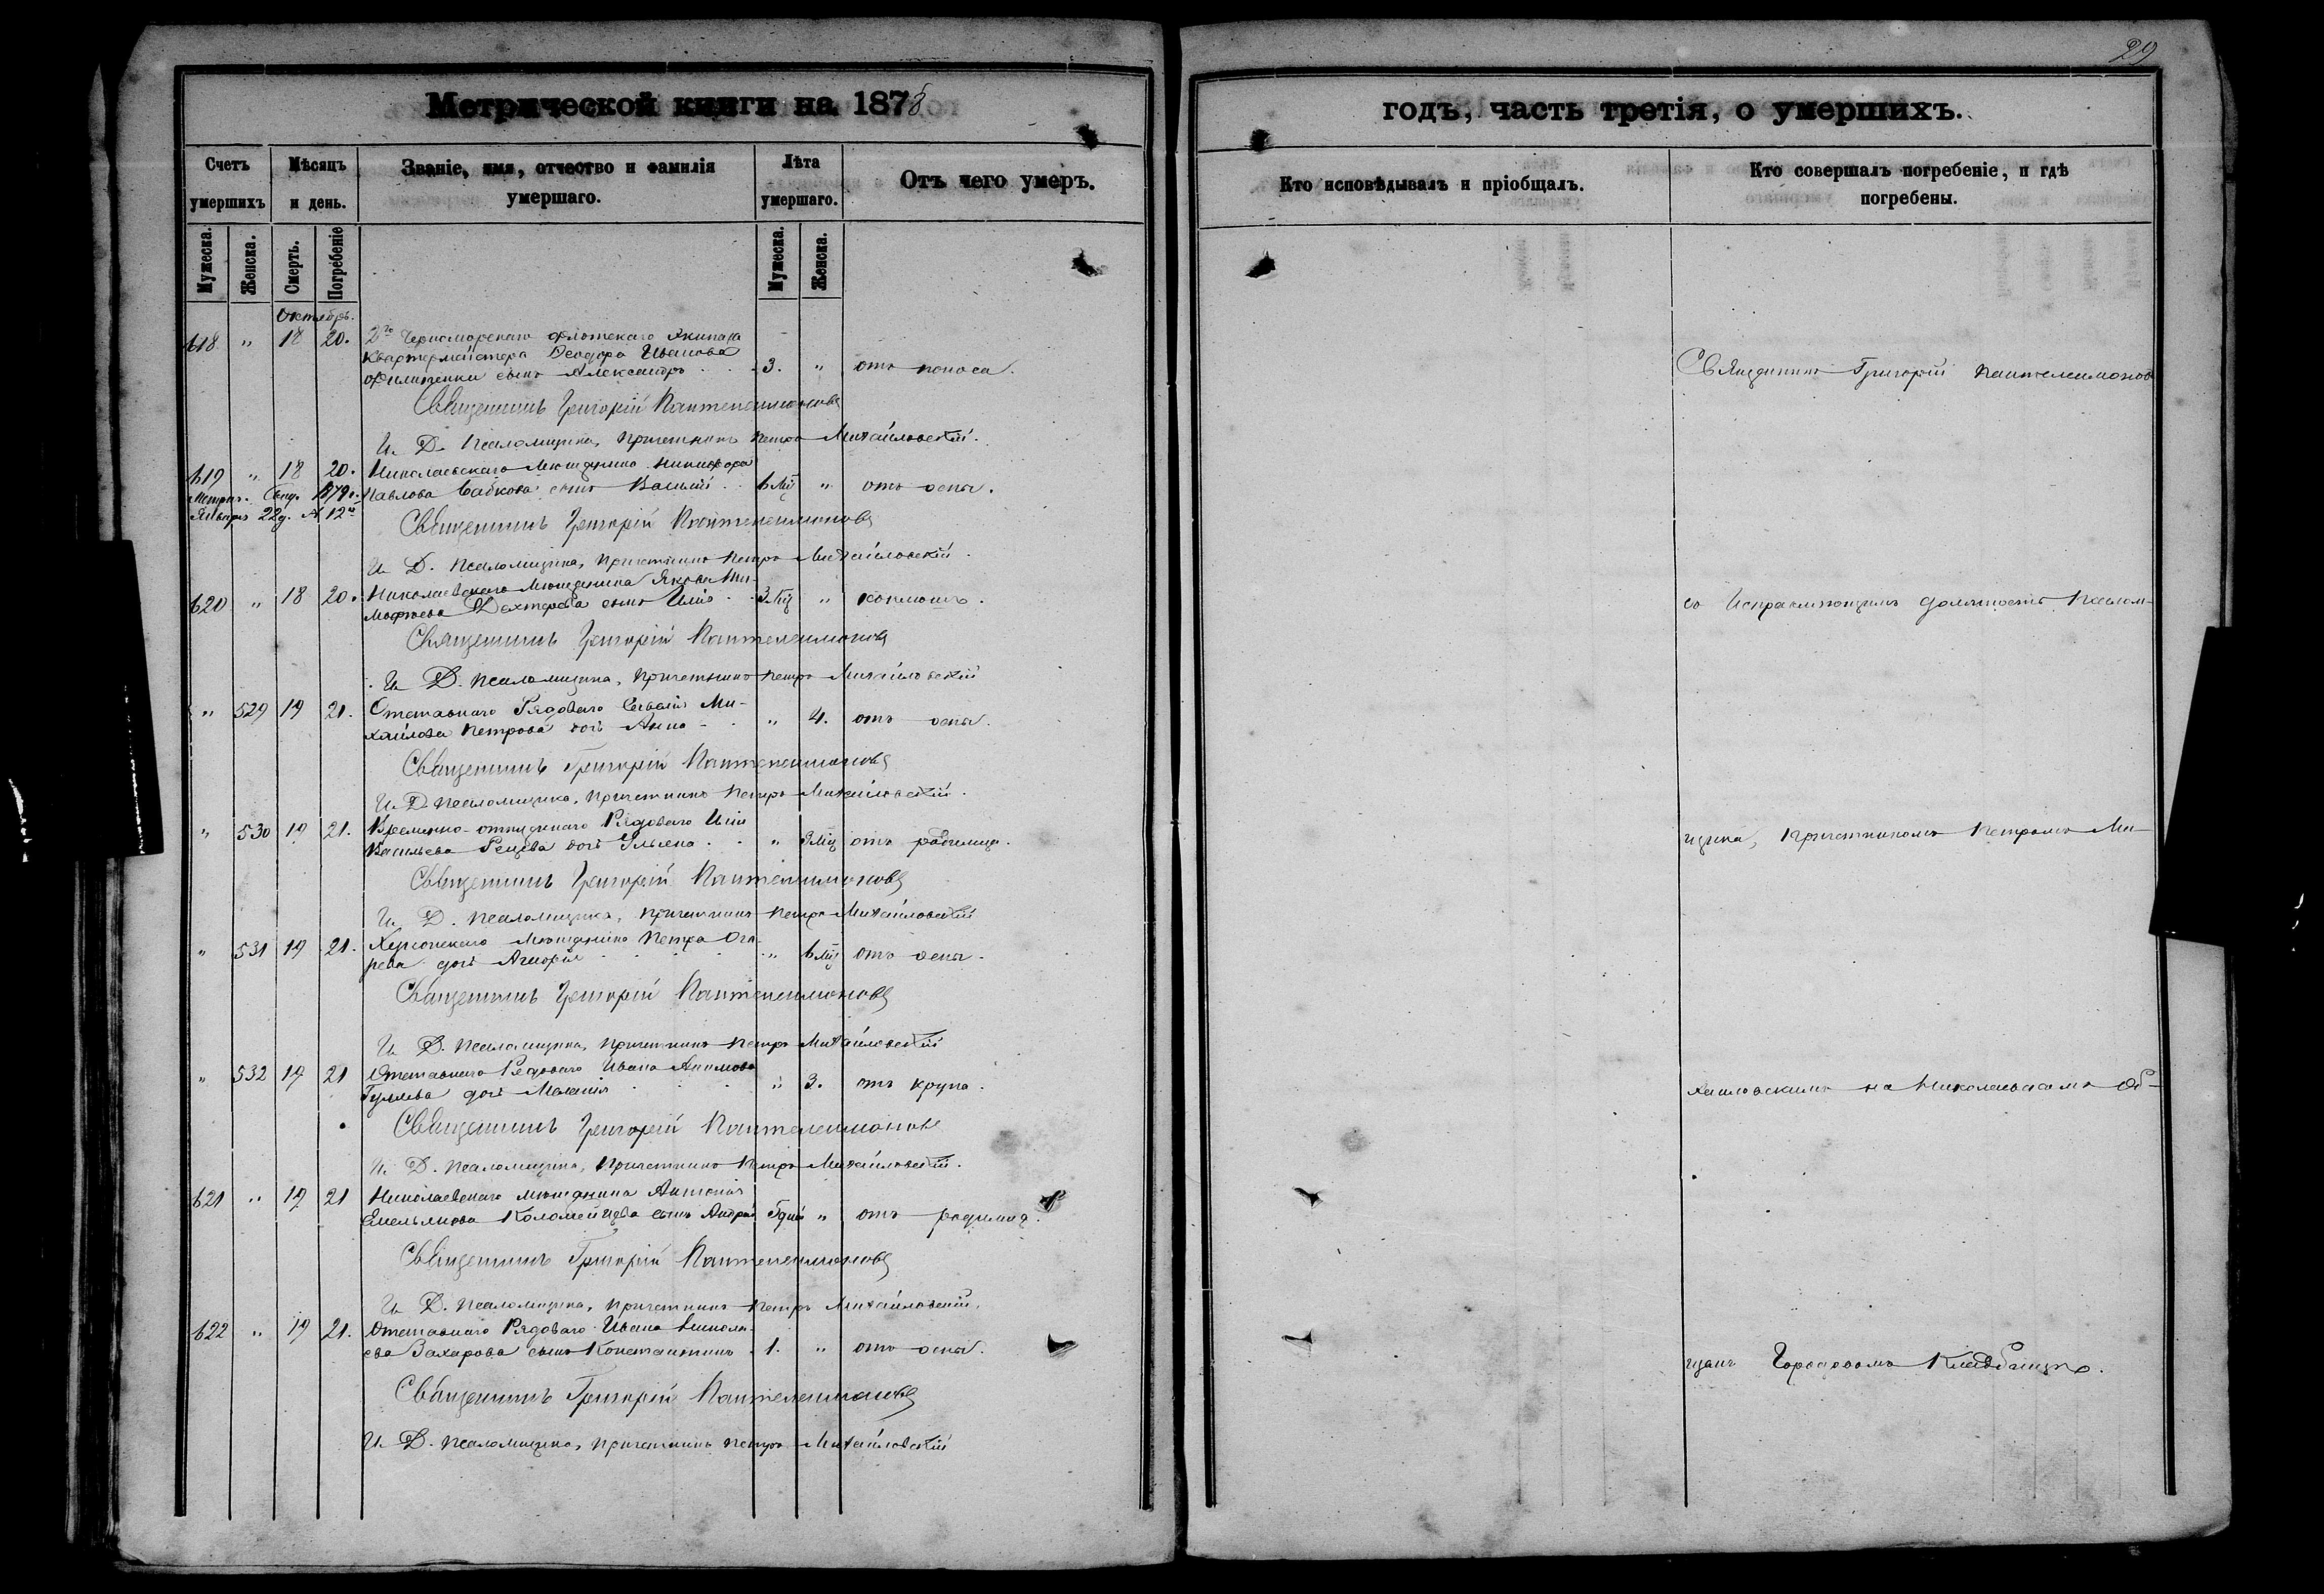 29
Метрической книги на 1878
годъ, часть третія, о умершихъ.
Счетъ умершихъ
Мѣсяцъ и день.
Званіе, имя, отчество и фамилія умершаго.
Лѣта умершаго.
Отъ чего умеръ.
Кто исповѣдывалъ и пріобщалъ.
Кто совершалъ погребеніе, и гдѣ погребены.
Мужеска.
Женска.
Смерть.
Погребеніе
Мужеска.
Женска.
Октябрь.
618 " 18 20. 2го Черноморскаго флотскаго Экипажа
Квартермейстера Ѳеодора Иванова
Филипенки сынъ Александръ 3. " отъ поноса.
Священникъ Григорій Пантелеимоновъ
И. Д. Псаломщика, Причетникъ Петръ Михайловскій.
619 " 18 20. Николаевскаго Мѣщанина Никифора
Павлова Бабкова сынъ Василій 6 Мц " отъ оспы.
Метрич. Свид. 1879 г.
Января 22 д. № 12й
Священникъ Григорій Пантелеимоновъ
И. Д. Псаломщика, Причетникъ Петръ Михайловскій.
620 " 18 20. Николаевскаго Мѣщанина Якова Ти-
мофѣева Дехтерева сынъ Илія 3 Мц " коклюшъ.
Священникъ Григорій Пантелеимоновъ
И. Д. Псаломщика, Причетникъ Петръ Михайловскій
" 529 19 21. Отставнаго Рядоваго Ми-
хайлова Петрова дочь Анна " 4. отъ оспы.
Священникъ Григорій Пантелеимоновъ
И. Д. Псаломщика, Причетникъ Петръ Михайловскій.
" 530 19 21. Временно-отпускнаго Рядоваго Иліи
Васильева дочь Ульяна " 3 Мц отъ родимца.
Священникъ Григорій Пантелеимоновъ
И. Д. Псаломщика, Причетникъ Петръ Михайловскій
" 531 19 21. Херсонскаго Мѣщанина Петра Ога-
рева дочь " 6 Мц отъ оспы.
Священникъ Григорій Пантелеимоновъ
И. Д. Псаломщика, Причетникъ Петръ Михайловскій
" 532 19 21 Отставнаго Рядоваго Ивана Акимова
дочь Меланія " 3. отъ крупа.
Священникъ Григорій Пантелеимоновъ
И. Д. Псаломщика, Причетникъ Петръ Михайловскій.
621 " 19 21 Николаевскаго мѣщанина Антонія
Емельянова Коломейцева сынъ Андрей " отъ родимца.
Священникъ Григорій Пантелеимоновъ
И. Д. Псаломщика, Причетникъ Петръ Михайловскій.
622 " 19 21. Отставнаго Рядоваго Ивана Никола-
ева Захарова сынъ Константинъ 1. " отъ оспы.
Священникъ Григорій Пантелеимоновъ
И. Д. Псаломщика, Причетникъ Петръ Михайловскій
Священникъ Григорій Пантелеимоновъ
со Исправляющимъ должность Псалом-
щика, Причетникомъ Петромъ Ми-
хайловскимъ на Николаевскомъ Об-
щемъ Городскомъ Кладбищѣ.